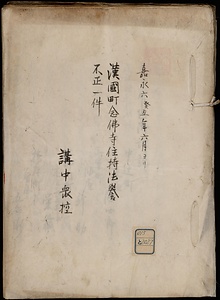 嘉永六癸丑年六月ヨリ
漢國町念佛寺住持法譽
不正一件
講中衆控